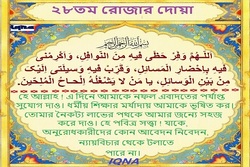 ২৮তম রোজার দোয়া
IQNA
اللَّهُمَّ وَفِّرْ حَظِّي فِيهِ مِنَ النَّوَافِلِ، وَأَكْرِمْنِي
فِيهِ بِإِحْضَارِ الْمَسَائِلِ، وَقَرِّبْ فِيهِ وَسِيلَتِي إِلَيْكَ
مِنْ بَيْنِ الْوَسَائِلِ، يَا مَنْ لَا يَشْغَلُهُ إِلْحَاحُ الْمُلِحِّينَ.
হে আল্লাহ ! এ দিনে আমাকে নফল এবাদতের পর্যাপ্ত
সুযোগ দাও। ধর্মীয় শিক্ষার মর্যাদায় আমাকে ভূষিত কর।
তোমার নৈকট্য লাভের পথকে আমার জন্যে সহজ
করে দাও। হে পবিত্র সত্ত্বা ! যাকে,
অনুরোধকারীদের কোন আবেদন নিবেদন,
ন্যায়বিচার থেকে টলাতে
পারে না।
IQNA